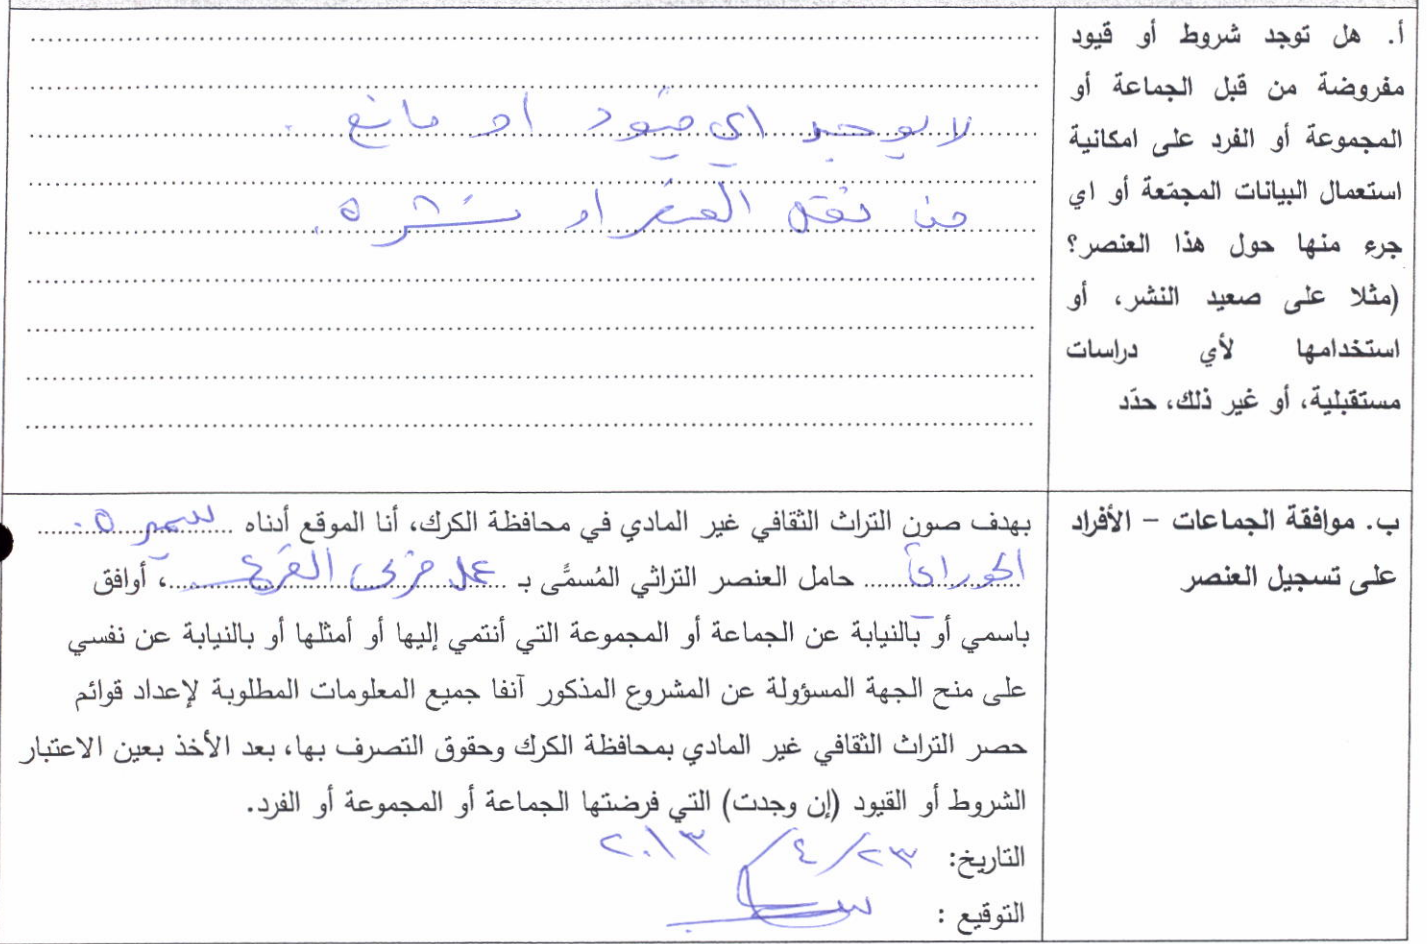 أ. هل توجد شروط أو قيود
مفروضة من قبل الجماعة أو
المجموعة أو الفرد على امكانية
استعمال البيانات المجمّعة أو اي
جرء منها حول هذا العنصر؟
(مثلا على صعيد النشر، أو
استخدامها لأي دراسات
مستقبلية، أو غير ذلك، حدّد
لا يوجد اي قيود او مانع .
من نقل العنصر او نشره .
ب. موافقة الجماعات – الأفراد
على تسجيل العنصر
بهدف صون التراث الثقافي غير المادي في محافظة الكرك، أنا الموقع أدناه سميره
الحوراني حامل العنصر التراثي المُسمًّى بـ عمل مربى القرع، أوافق
باسمي أو بالنيابة عن الجماعة أو المجموعة التي أنتمي إليها أو أمثلها أو بالنيابة عن نفسي
على منح الجهة المسؤولة عن المشروع المذكور آنفا جميع المعلومات المطلوبة لإعداد قوائم
حصر التراث الثقافي غير المادي بمحافظة الكرك وحقوق التصرف بها، بعد الأخذ بعين الاعتبار
الشروط أو القيود (إن وجدت) التي فرضتها الجماعة أو المجموعة أو الفرد.
التاريخ: ٢٣/٤/٢٠١٣
التوقيع :